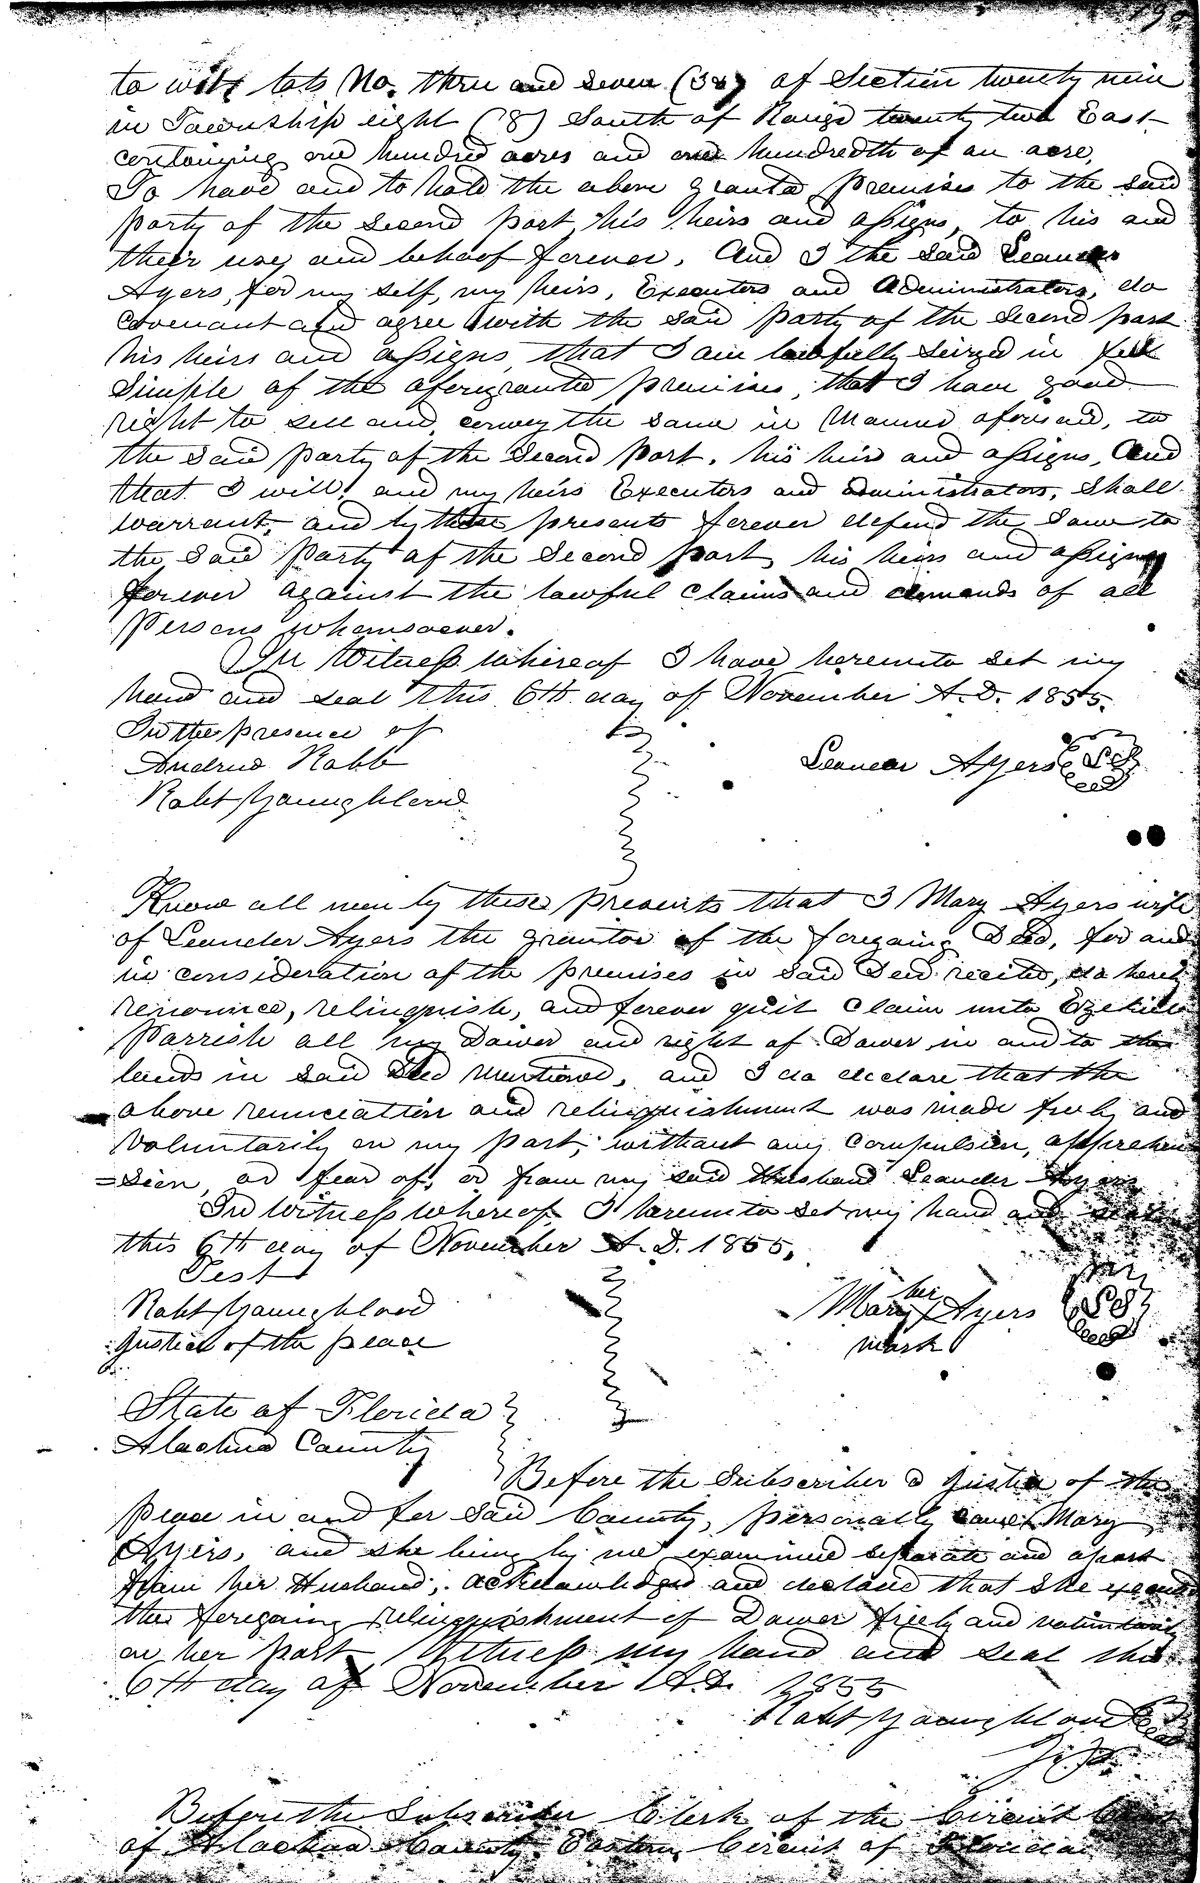 to wit lots No. three and seven (3&7) of Section twenty nine
in Township eight (8) South of Range twenty two East
containing one hundred acres and one hundredth of an acre,
To have and to hold the above granted premises to the said
party of the second part his heirs and assigns, to his and
their use, and behoof forever. And I the said Leander
Ayers, for my self, my heirs, Executors and Administrators, do
covenant and agree with the said party of the second part
his heirs and assigns, that I am lawfully seized in fee
Simple of the aforegranted premises, that I have good
right to sell and convey the same in Manner aforesaid, to
the said party of the Second Part, his heirs and assigns, And
that I will, and my heirs Executors and administrators, Shall
warrant, and by these presents forever defend the same to
the said Party of the Second Part, his heirs and assigns
forever against the lawful claims and demands of all
Persons whomsoever.
In Witness Whereof I have hereunto set my
hand and seal this 6th day of November A.D. 1855.
In the presence of
Andrew Rabb
Leander Ayers LS
Robt Youngblood
Know all men by these presents that I Mary Ayers wife
of Leander Ayers the grantor of the foregoing Deed, for and
in consideration of the premises in said Deed recited, do hereby
renounce, relinquish, and forever quit claim unto Ezekiel
Parrish all my Dower and right of Dower in and to the
lands in said Deed Mentioned, and I do declare that the
above renunciation and relinquishment was made freely and
voluntarily on my part, without any compulsion, apprehen
=sion, or fear of, or from my said Husband Leander Ayers
In Witness Whereof, I hereunto set my hand and seal
this 6th day of November A.D. 1855,
Test
Robt Youngblood
her
Mary X Ayers LS
Justice of the peace
mark
State of Florida
Alachua County
Before the Subscriber a Justice of the
Peace in and for said County, personally came Mary
Ayers, and she being by me examined separate and apart
from her Husband, acknowledged and declared that she executed
the foregoing relinquishment of Dower freely and voluntarily
on her part Witness my hand and seal this
6th day of November A.D. 1855
Robt Youngblood
J.P.
Before the Subscriber Clerk of the Circuit Court
of Alachua County, Eastern Circuit of Florida